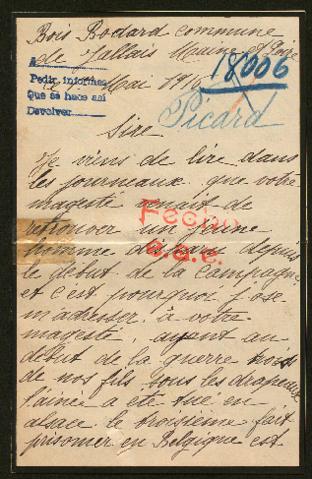 Bois Bodard commune
de Jallais Maine et Loire
Mai 191
18006
A
Pedir informes
Que se hace así
Devolver
Picard
Sire
Je viens de lire dans
les journeaux que votre
magesté venait de
retrouver un jeune
homme disparu depuis
le début de la campagne
et c'est pourquoi j'ose
m'adresser à votre
magesté, ayant au
début de la guerre trois
de nos fils sous les drapeaux
l'ainée a eté tué en
alsace le troisième fait
prisonier en Belgique est
Fecho
s.a.e.